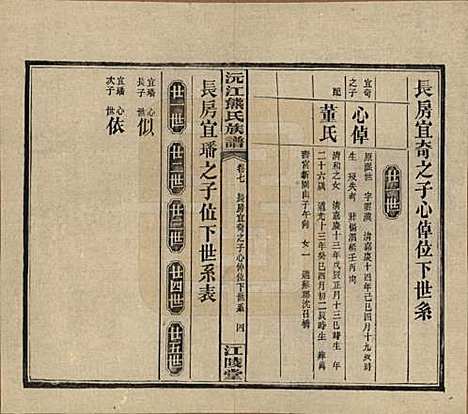 長房宜奇之子心倬位下世系
廿一世
宜奇之子
心倬
清嘉慶十四年己巳四月十九
生 歿失考
配
董氏
清和之女 清嘉慶十三年戊辰正月十三巳時生 年
二十六歲 道光十三年癸巳四月初二辰時生
女一 適蘇郡沈日橋
沅江熊氏族譜
卷七 長房宜奇之子心倬位下世系 四
江陵堂
長房宜璠之子位下世系表
廿一世
廿二世
廿三世
廿四世
廿五世
宜璠長子 心似
宜璠次子 心依